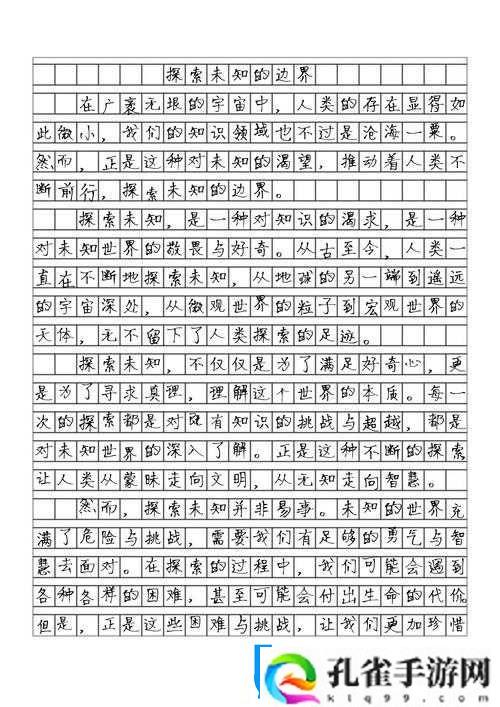 探索未知的边界
在广袤无垠的宇宙中，人类的存在显得如
此微小，我们的知识领域也不过是沧海一粟。
然而，正是这种对未知的渴望，推动着人类不
断前行，探索未知的边界。
探索未知，是一种对知识的渴求，是一种
对未知世界的敬畏与好奇。从古至今，人类一
直在不断地探索未知，从地球的另一端到遥远
的宇宙深处，从微观世界的粒子到宏观世界的
天体，无不留下了人类探索的足迹。
探索未知，不仅仅是为了满足好奇心，更
是为了寻求真理，理解这个世界的本质。每一
次的探索都是对既有知识的挑战与超越，都是
对未知世界的深入了解。正是这种不断的探索，
让人类从蒙昧走向文明，从无知走向智慧。
然而，探索未知并非易事。未知的世界充
满了危险与挑战，需要我们有足够的勇气与智
慧去面对。在探索的过程中，我们可能会遇到
各种各样的困难，甚至可能会付出生命的代价。
但是，正是这些困难与挑战，让我们更加珍惜
孔雀手游网
ktq99.com